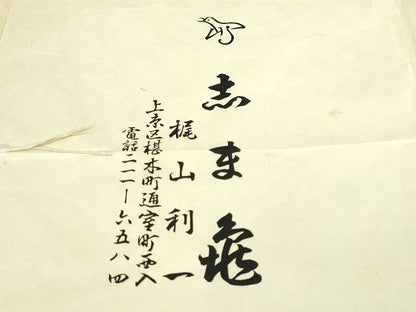 志ま亀
梶山利一
上京区椹木町通室町西入
電話二一一ー六五八四